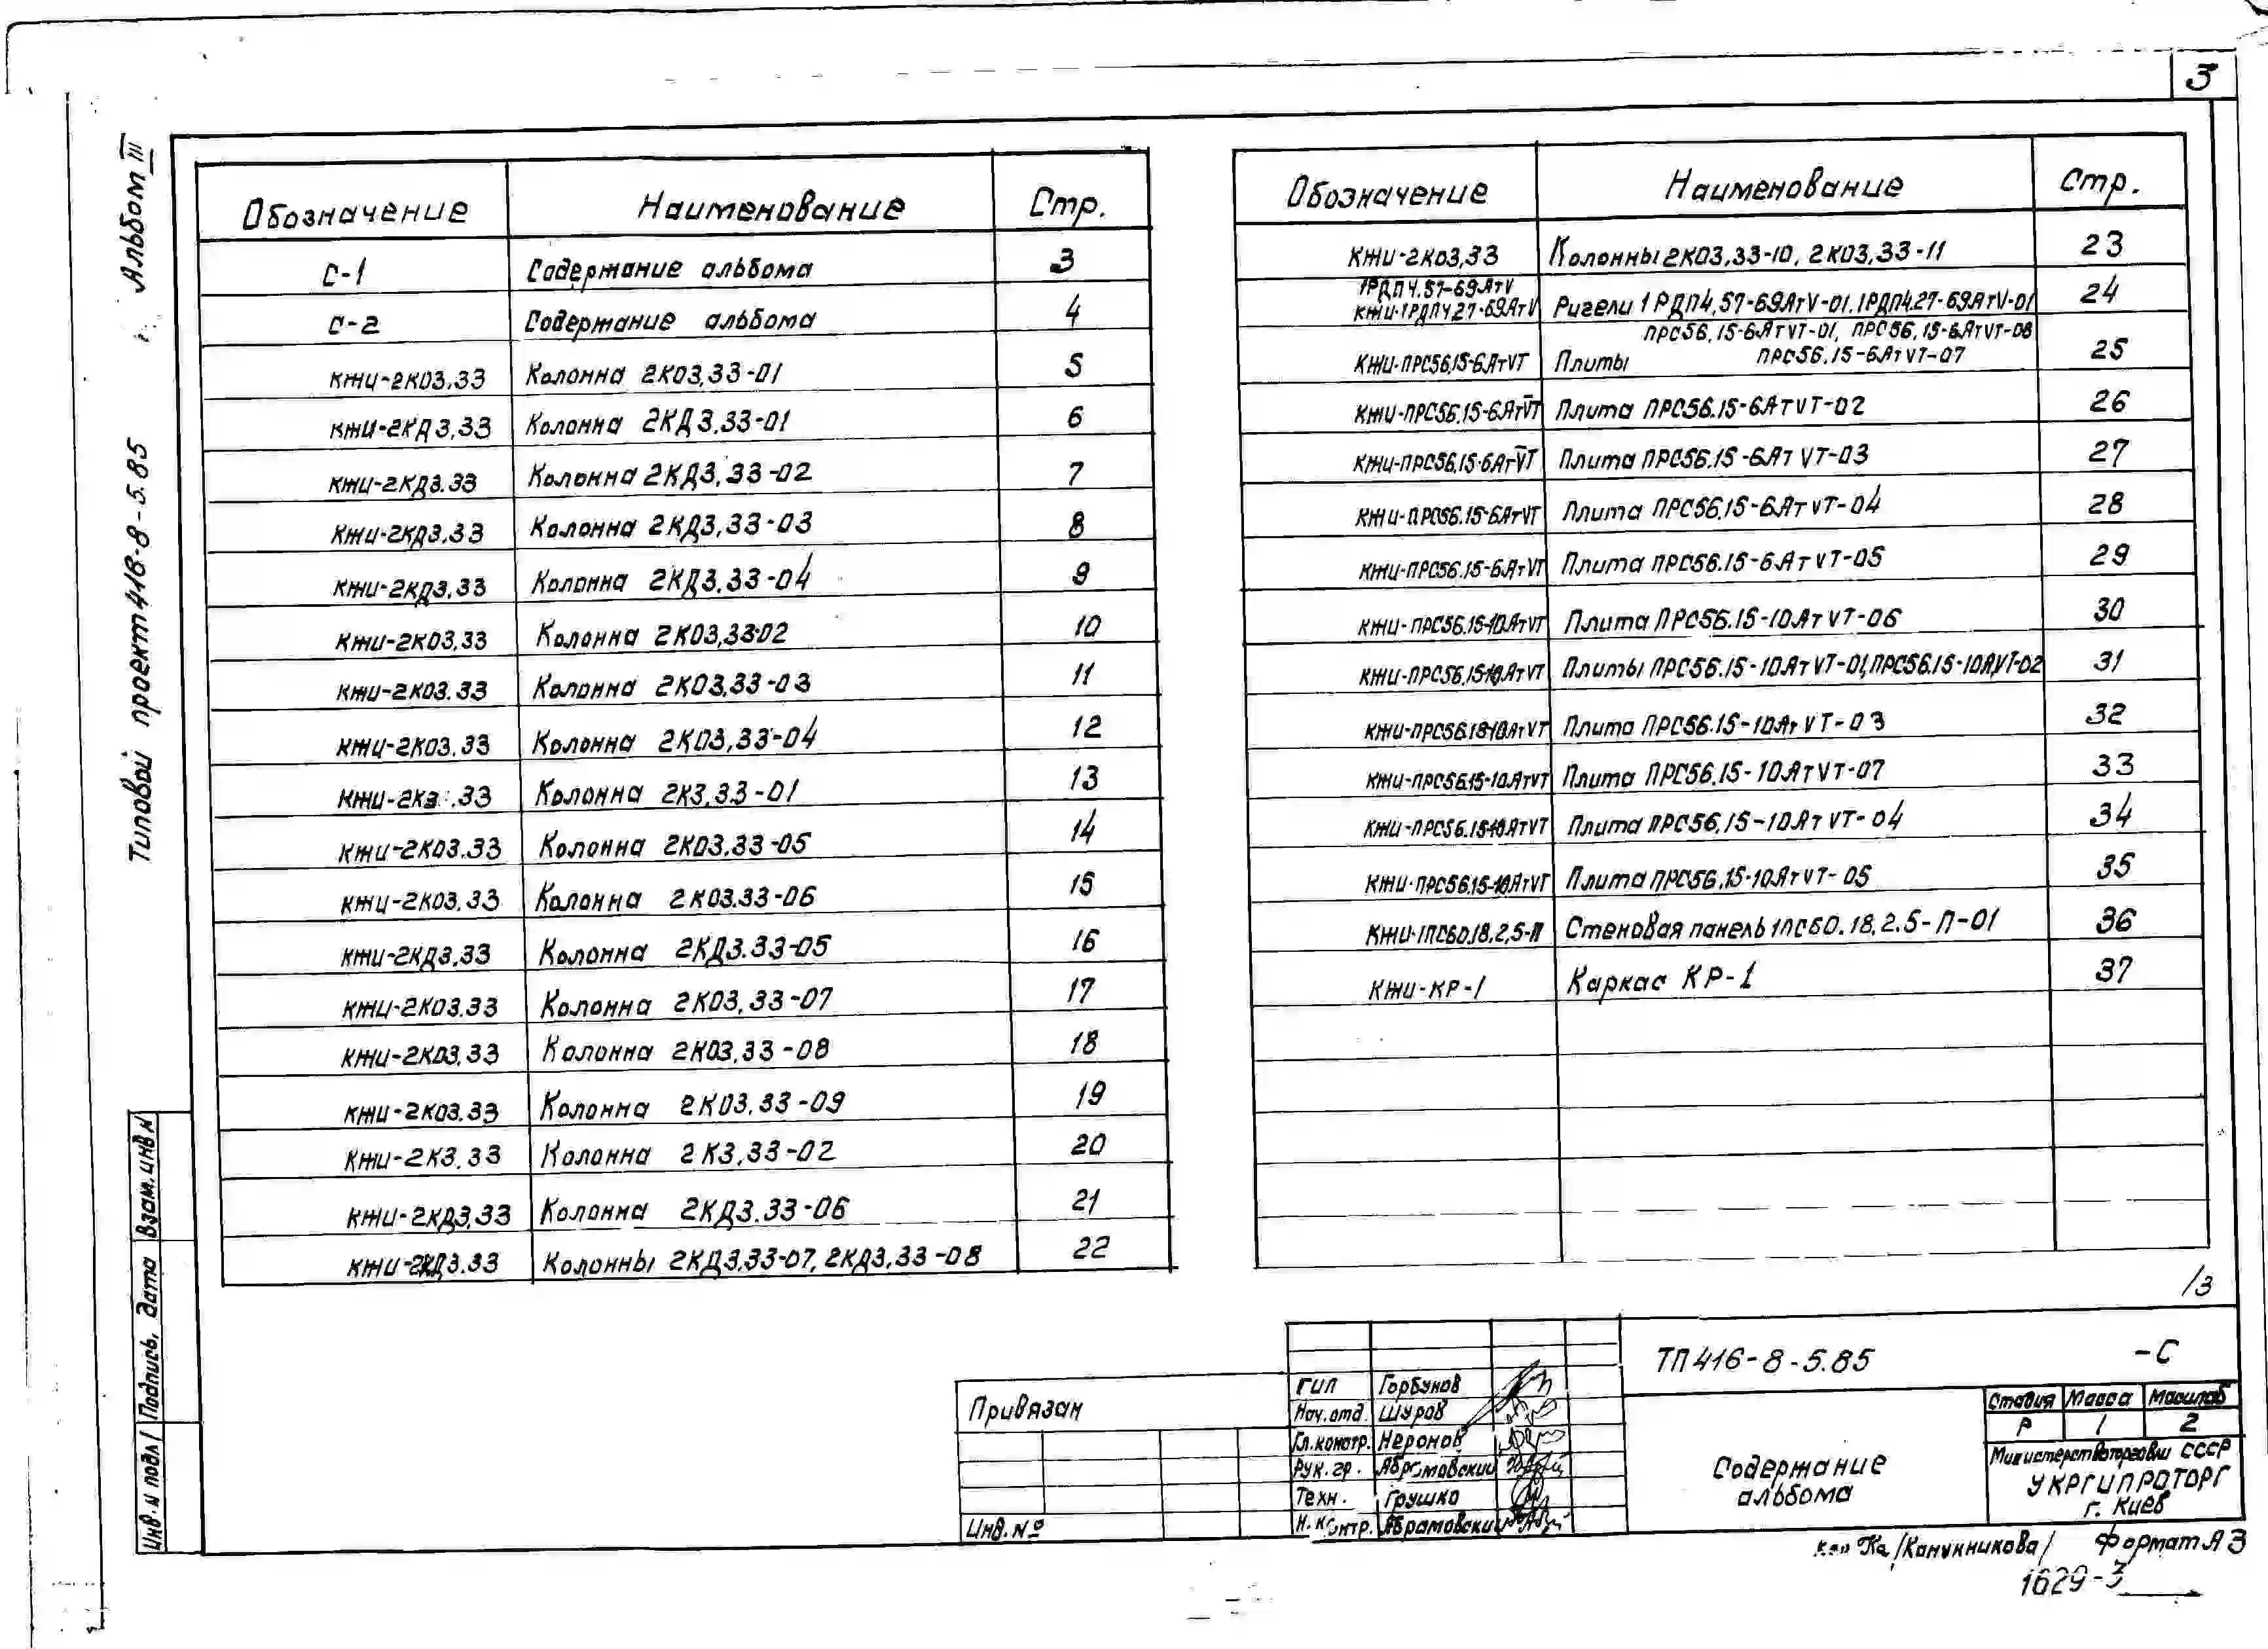 3
Альбом III
Типовой проект 416-8-5.85
Обозначение Наименование Стр.
С-1 Содержание альбома 3
С-2 Содержание альбома 4
КЖИ-2КО3,33 Колонна 2КО3,33-01 5
КЖИ-2КД3,33 Колонна 2КД3.33-01 6
КЖИ-2КД3.33 Колонна 2КД3,33-02 7
КЖИ-2КД3,33 Колонна 2КД3,33-03 8
КЖИ-2КД3,33 Колонна 2КД3.33-04 9
КЖИ-2КО3,33 Колонна 2КО3,33-02 10
КЖИ-2КО3.33 Колонна 2КО3,33-03 11
КЖИ-2КО3.33 Колонна 2КО3,33-04 12
КЖИ-2К3.33 Колонна 2К3,33-01 13
КЖИ-2КО3.33 Колонна 2КО3.33-05 14
КЖИ-2КО3.33 Колонна 2КО3.33-06 15
КЖИ-2КД3.33 Колонна 2КД3.33-05 16
КЖИ-2КО3.33 Колонна 2КО3,33-07 17
КЖИ-2КО3.33 Колонна 2КО3,33-08 18
КЖИ-2КО3.33 Колонна 2КО3,33-09 19
КЖИ-2К3.33 Колонна 2К3,33-02 20
КЖИ-2КД3,33 Колонна 2КД3.33-06 21
КЖИ-2КД3.33 Колонны 2КД3,33-07, 2КД3,33-08 22
Обозначение Наименование Стр.
КЖИ-2КО3,33 Колонны 2КО3,33-10, 2КО3,33-11 23
1РДП4.57-69АтV
КЖИ-1РДП4.27-69АтV Ригели 1РДП4,57-69АтV-01, 1РДП4.27-69АтV-01 24
ПРС56.15-6АтVТ-01, ПРС56,15-6АтVТ-08
КЖИ-ПРС56,15-6АтVТ Плиты ПРС56.15-6АтVТ-07 25
КЖИ-ПРС56.15-6АтVТ Плита ПРС56.15-6АтVТ-02 26
КЖИ-ПРС56.15-6АтVТ Плита ПРС56.15-6АтVТ-03 27
КЖИ-ПРС56.15-6АтVТ Плита ПРС56.15-6АтVТ-04 28
КЖИ-ПРС56.15-6АтVТ Плита ПРС56.15-6АтVТ-05 29
КЖИ-ПРС56.15-10АтVТ Плита ПРС56.15-10АтVТ-06 30
КЖИ-ПРС56.15-10АтVТ Плиты ПРС56.15-10АтVТ-01, ПРС56.15-10АтVТ-02 31
КЖИ-ПРС56.15-10АтVТ Плита ПРС56.15-10АтVТ-03 32
КЖИ-ПРС56.15-10АтVТ Плита ПРС56.15-10АтVТ-07 33
КЖИ-ПРС56.15-10АтVТ Плита ПРС56,15-10АтVТ-04 34
КЖИ-ПРС56.15-10АтVТ Плита ПРС56.15-10АтVТ-05 35
КЖИ-1ПС60.18.2,5-П Стеновая панель 1ПС60.18.2.5-П-01 36
КЖИ-КР-1 Каркас КР-1 37
/3
Взам. инв N
Подпись, дата
Инв. N подл
Привязан
Инв. №
ГИП Горбунов
Нач. отд. Шуров
Гл. констр. Неронов
Рук. гр. Абрамовский
Техн. Грушко
Н. контр. Абрамовский
ТП 416-8-5.85 -С
Содержание
альбома
Стадия Масса Масштаб
Р 1 2
Министерство торговли СССР
УКРГИПРОТОРГ
г. Киев
/Канунникова/ Формат А3
1629-3